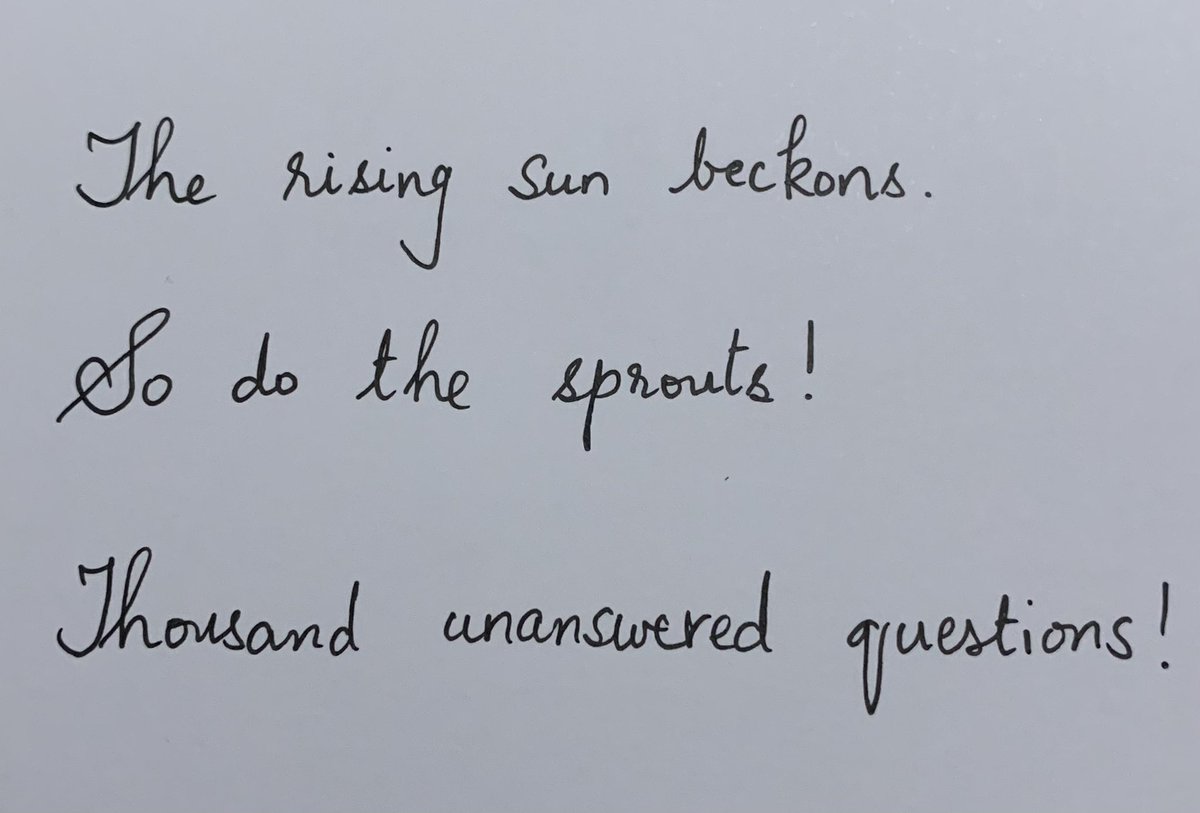 The rising sun beckons.
So do the sprouts!
Thousand unanswered questions!